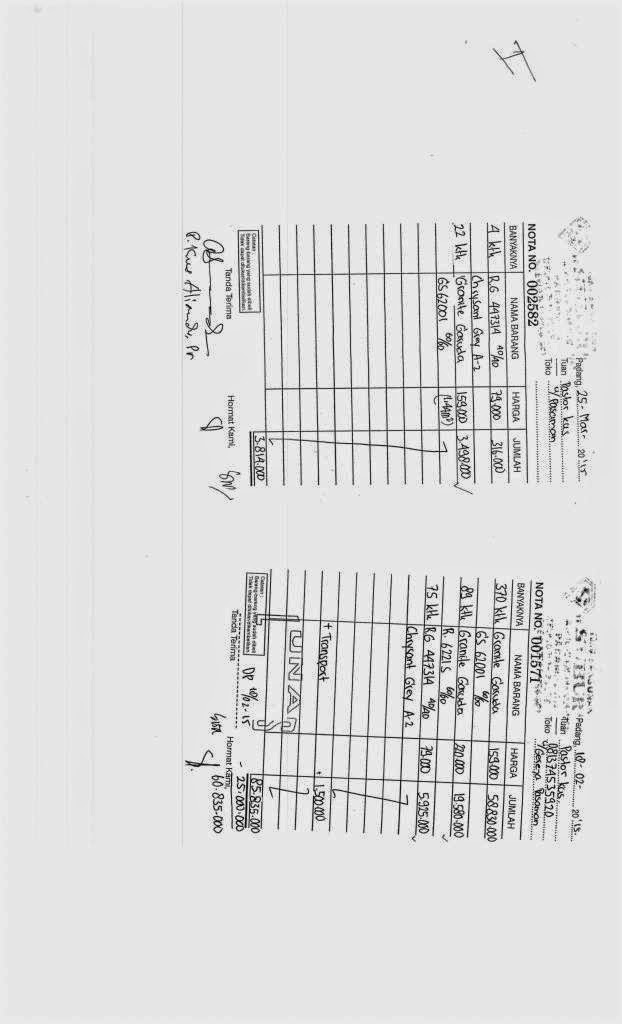 I
Padang, 25 - Mar - 2015
Tuan Pastor kus
Toko u/ Pasaman
NOTA NO. 002582
BANYAKNYA NAMA BARANG HARGA JUMLAH
4 ktk RG 447314 40/40 79.000 316.000
Chrysant Grey A-2
22 ktk Granite Garuda 159.000 3.498.000
GS 62001 60/60 (1.44m²)
3.814.000
Catatan :
Barang-barang yang sudah dibeli
Tidak dapat ditukar/dikembalikan
Tanda Terima Hormat Kami,
Padang, 10 - 02 - 2015
Tuan Pastor kus.
081374535920
Toko u/ Gereja Pasaman
NOTA NO. 001571
BANYAKNYA NAMA BARANG HARGA JUMLAH
370 ktk Granite Garuda 159.000 58.830.000
GS 62001 60/60
89 ktk Granite Garuda 220.000 19.580.000
R. 62215 60/60
75 ktk RG 447314 40/40 79.000 5.925.000
Chrysant Grey A-2
+ Transport 1.500.000
LUNAS
85.835.000
Catatan :
Barang-barang yang sudah dibeli
Tidak dapat ditukar/dikembalikan
DP 10/02-15 - 25.000.000
Tanda Terima Hormat Kami, 60.835.000